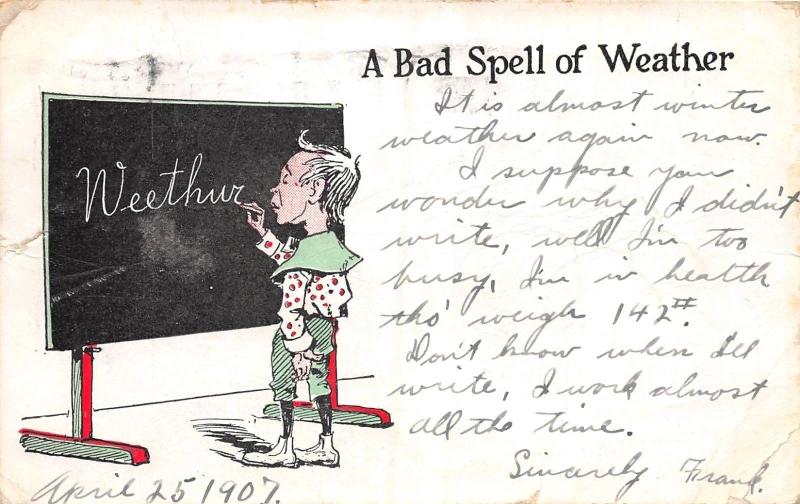 A Bad Spell of Weather
Weethur
It is almost winter
weather again now.
I suppose you
wonder why I didn't
write, well I'm too
busy, I'm in health
tho' weigh 142#.
Don't know when I'll
write, I work almost
all the time.
Sincerely Frank.
April 25 1907.